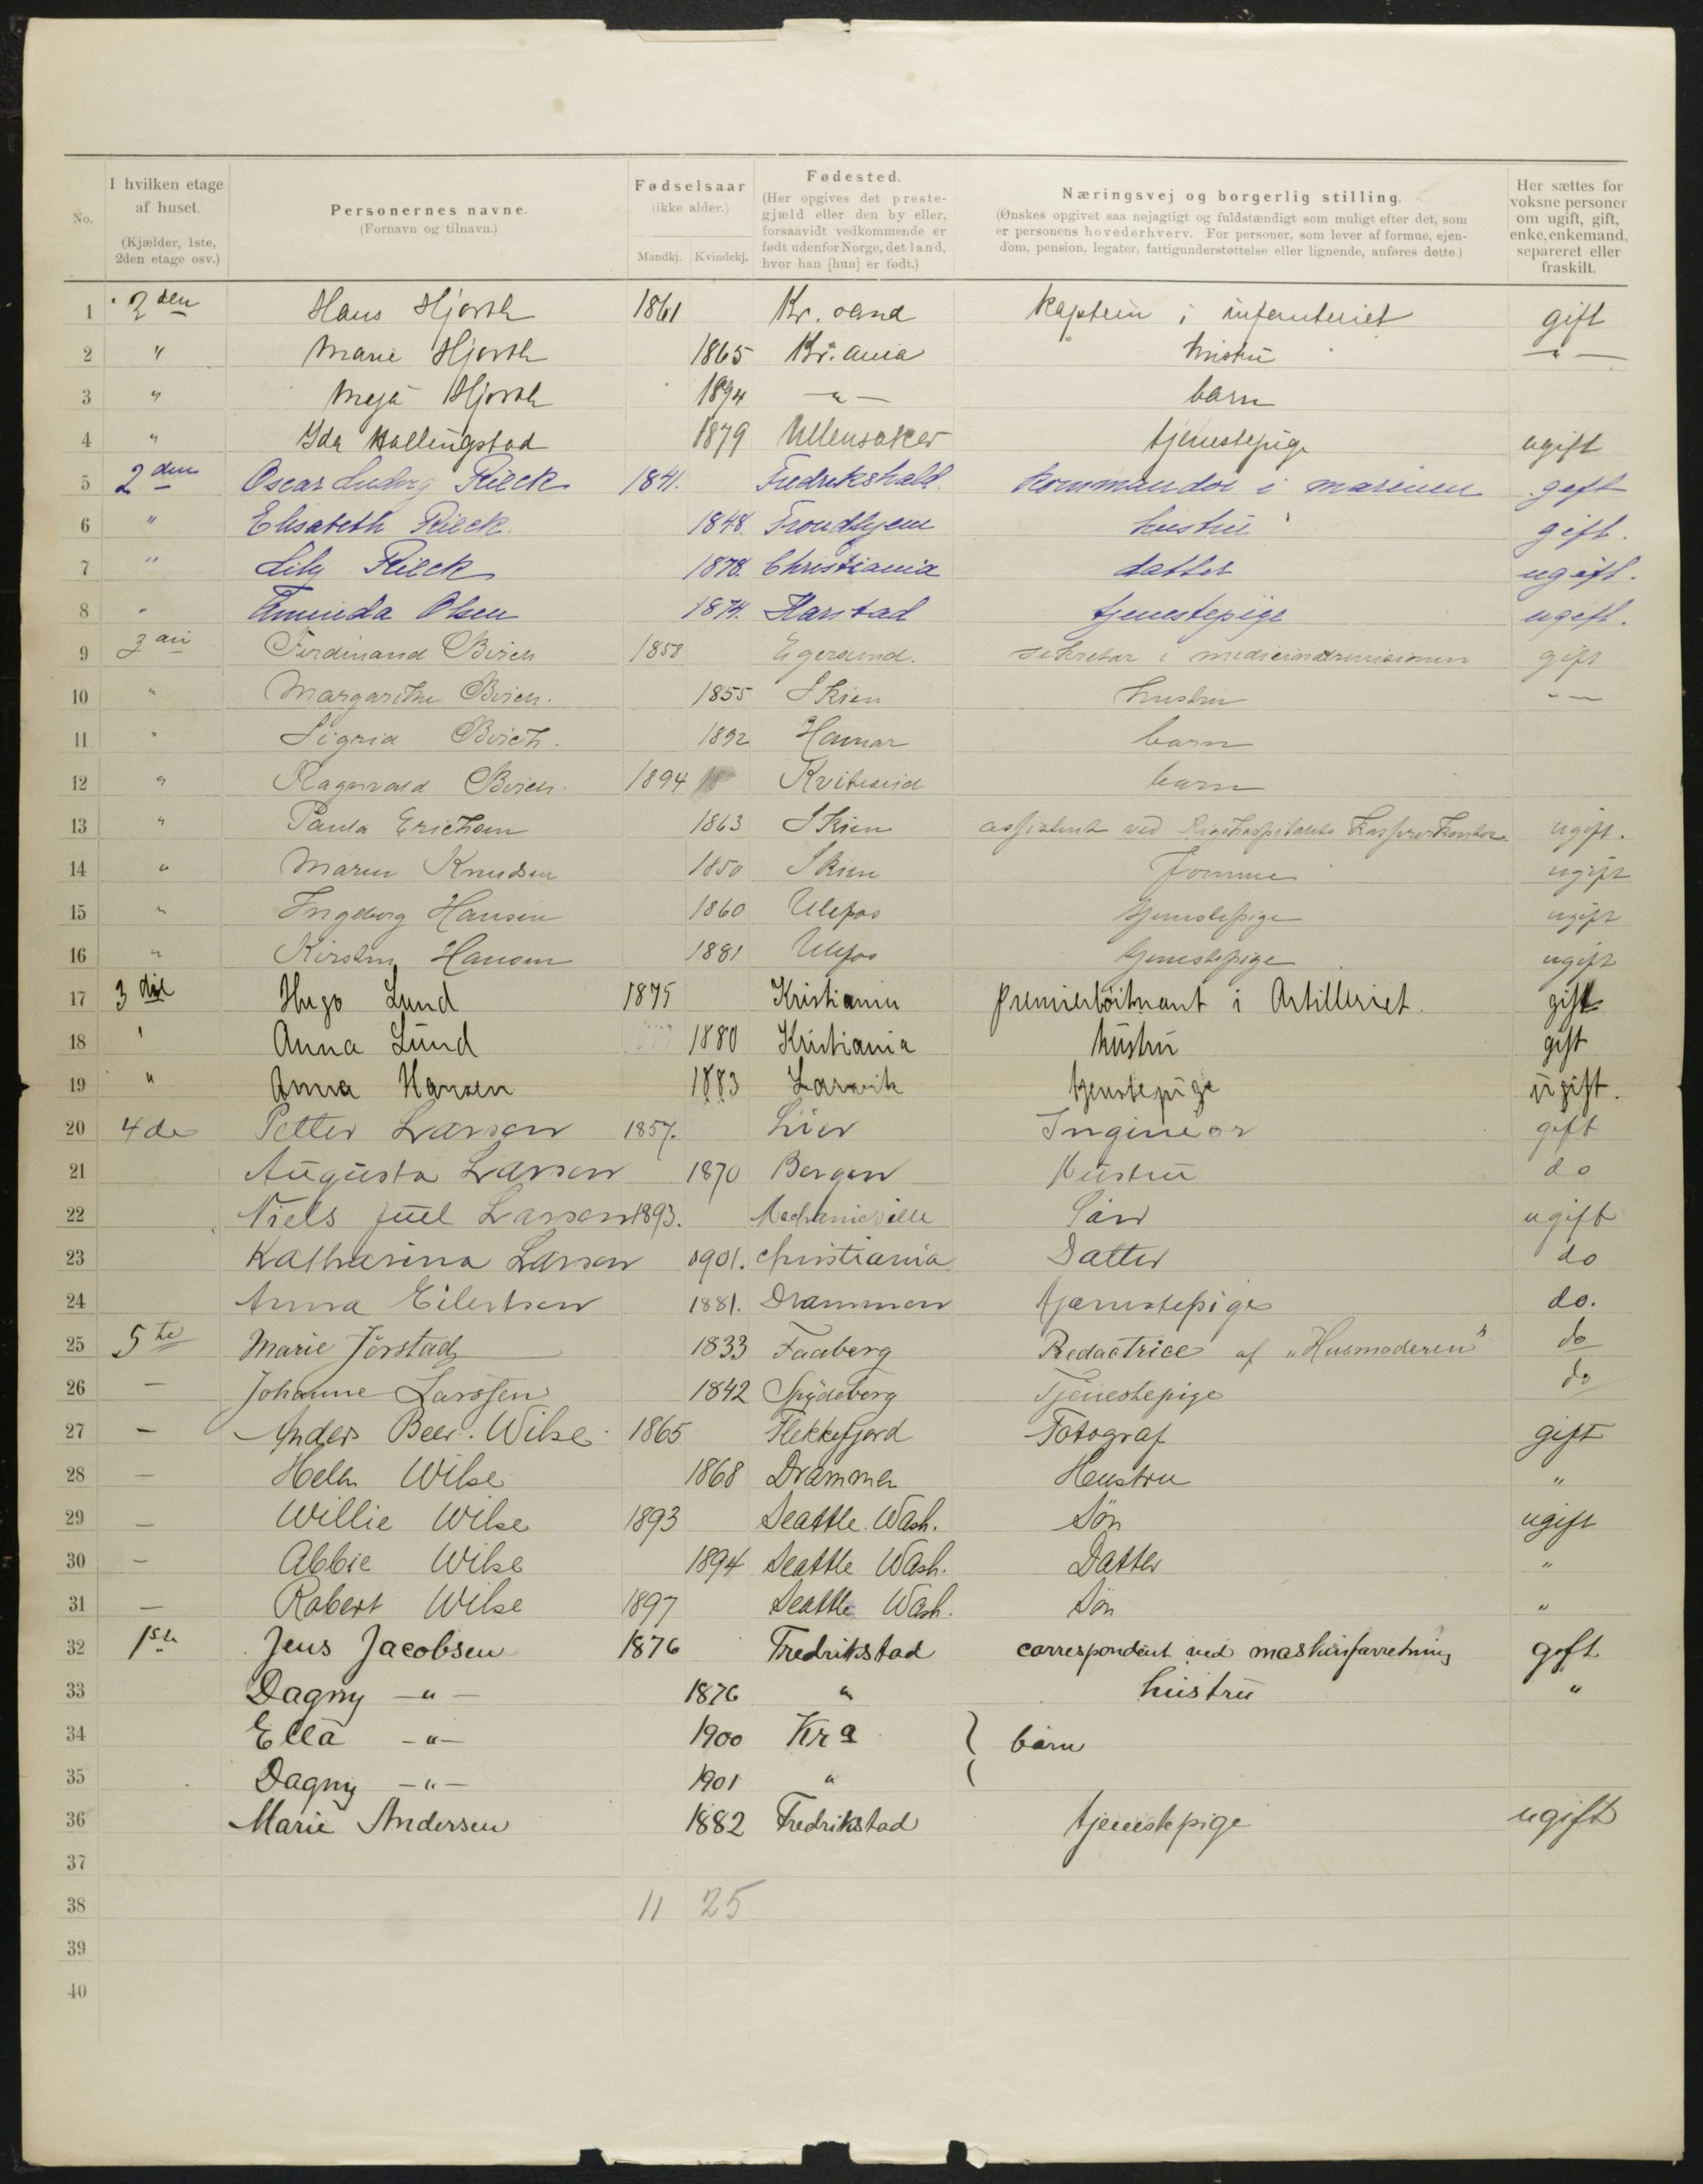 No.
I hvilken etage af huset. (Kjælder, 1ste, 2den etage osv.)
Personernes navne. (Fornavn og tilnavn.)
Fødselsaar (ikke alder.) Mandkj. Kvindekj.
Fødested. (Her opgives det prestegjæld eller den by eller, forsaavidt vedkommende er født udenfor Norge, det land, hvor han [hun] er født.)
Næringsvej og borgerlig stilling. (Ønskes opgivet saa nøjagtigt og fuldstændigt som muligt efter det, som er personens hovederhverv. For personer, som lever af formue, ejendom, pension, legater, fattigunderstøttelse eller lignende, anføres dette.)
Her sættes for voksne personer om ugift, gift, enke, enkemand, separeret eller fraskilt.
1 2den Hans Hjorth 1861 Kr. sand Kaptein i infanteriet gift
2 " Marie Hjorth 1865 Kr. ania hustru — " —
3 " Hjorth 1894 — " — barn
4 " Ida Hallingstad 1879 Ullensaker tjenestepige ugift
5 2den Oscar Ludvig Rieck 1841. Fredrikshald. Kommandør i marinen gift
6 " Elisabeth Rieck. 1848. Trondhjem hustru gift.
7 " Lily Rieck 1878. Christiania datter ugift.
8 " Olsen 1874. Harstad tjenestepige ugift.
9 Ferdinand Birch 1858 Egersund. sekretær i gift
10 " Margarithe Birch. 1855 Skien hustru — —
11 " Sigrid Birch. 1892 Hamar barn
12 " Ragnvald Birch. 1894 Kviteseid barn
13 " Paula Erichsen 1863 Skien assistent ved Rigshospitalets Kassererkontor. ugift.
14 " Maren Knudsen 1850 Skien Formue ugift
15 " Ingeborg Hansen 1860 Ulefos tjenestepige ugift
16 " Kirsten Hansen 1881 Ulefos tjenestepige ugift
17 3die Hugo Lund 1875 Kristiania premierløitnant i Artilleriet. gift
18 " Anna Lund 1880 Kristiania hustru gift
19 " Anna Hansen 1883 Larvik tjenstepige ugift.
20 4de Petter Larsen 1857. Lier Ingeniør gift
21 Augusta Larsen 1870 Bergen Hustru do
22 Niels Juel Larsen 1893. Mechanicville Søn ugift
23 Katharina Larsen 1901. Christiania Datter do
24 Anna Eilertsen 1881. Drammen tjænestepige do.
25 5te Marie Jørstad 1833 Faaberg Redactrice af „Husmoderen" do
26 — Johanne Larssen 1842 Spydeberg Tjenestepige do
27 — Anders Beer. Wilse 1865 Flekkefjord Fotograf gift
28 — Helen Wilse 1868 Drammen Hustru "
29 — Willie Wilse 1893 Seattle. Wash. Søn ugift
30 — Abbie Wilse 1894 Seattle Wash. Datter "
31 — Robert Wilse 1897 Seattle Wash. Søn "
32 1ste Jens Jacobsen 1876 Fredrikstad correspondent ved maskinforretning gift
33 Dagny — " — 1876 " hustru "
34 Ella — " — 1900 Kra } barn
35 Dagny — " — 1901 "
36 Marie Andersen 1882 Fredrikstad tjenestepige ugift
37
38 11 25
39
40